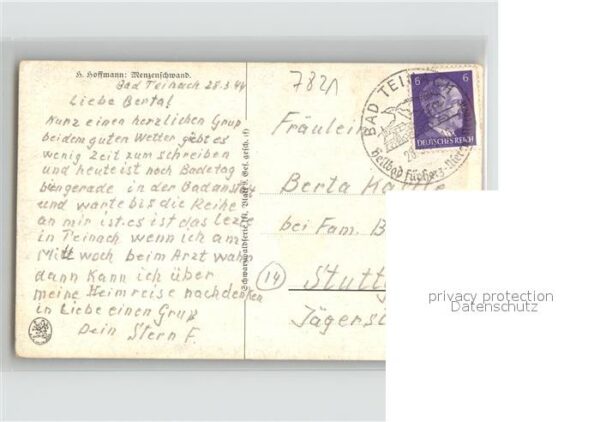 H. Hoffmann: Menzenschwand.
Bad Teinach 28.3.44
Liebe Berta!
Kurz einen herzlichen Gruß
bei dem guten Wetter gebt es
wenig Zeit zum schreiben
und heute ist noch Badetag
bin gerade in der Badanstalt
und warte bis die Reihe
an mir ist. es ist das lezte
in Teinach wenn ich am
Mittwoch beim Arzt wahr
dann kann ich über
meine Heimreise nachdenken
in Liebe einen Gruß
Dein Stern F.
Schwarzwaldserie
Ges. gesch.
7821
Fräulein
Berta
bei Fam. B
(14) Stutt
Jägerst
BAD TEIN
Heilbad für Herz-
28
6 6
DEUTSCHES REICH
privacy protection
Datenschutz